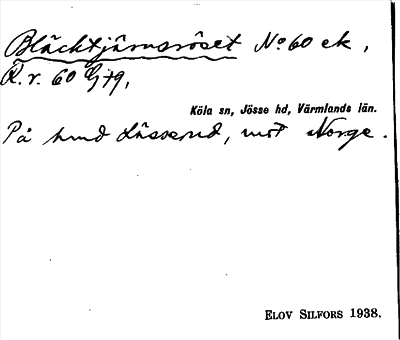 Bläcktjärnsröset No 60 ek,
R.r. 60 G79,
Köla sn, Jösse hd, Värmlands län.
På hmd Lässerud, mot Norge.
ELOV SILFORS 1938.